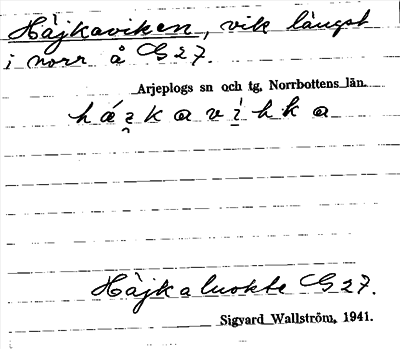 Häjkaviken, vik längst
i norr å G 27.
Arjeplogs sn och tg, Norrbottens län.
Häjkaluokte G 27.
Sigvard Wallström, 1941.